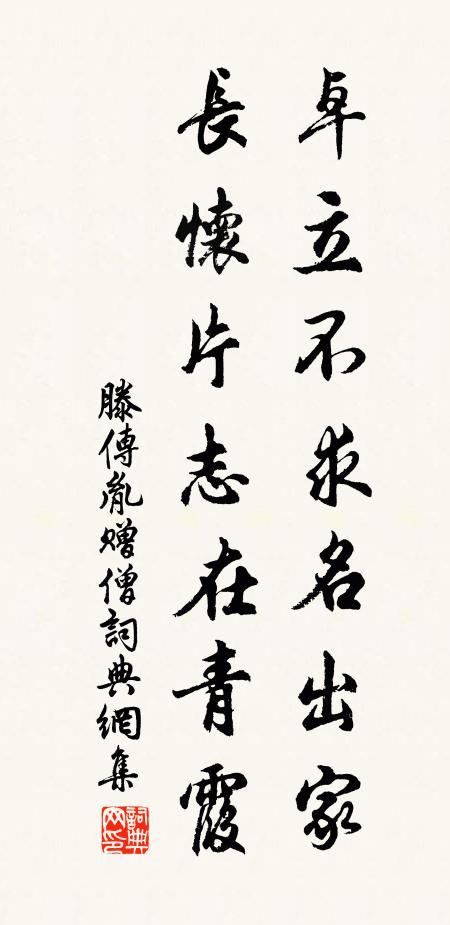 卓立不求名出家
長懷片志在青霞
滕傳胤贈僧詞典網集
詞典网印